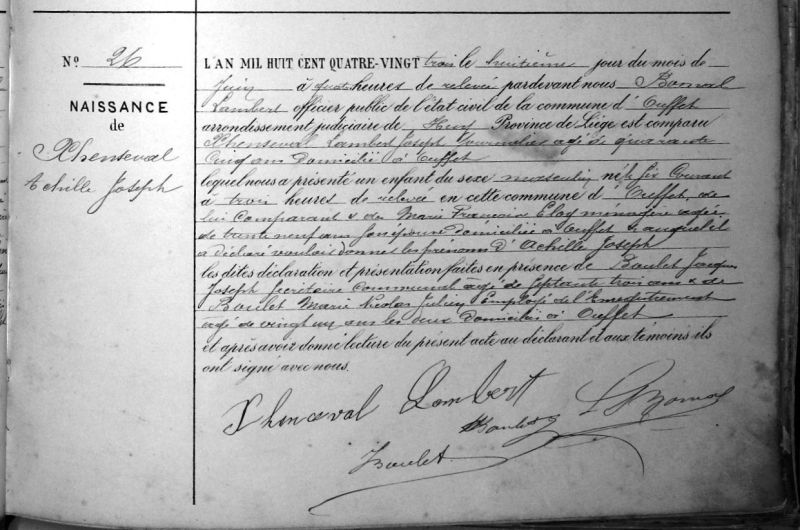 N.º 26
NAISSANCE
de
Xhenseval
Achille Joseph
L'AN MIL HUIT CENT QUATRE-VINGT trois le huitième jour du mois de
Juin à quatre heures de relevée pardevant nous Bonval
Lambert officier public de l'état civil de la commune d'Ouffet
arrondissement judiciaire de Huy Province de Liége est comparu
Xhenseval Lambert Joseph Journalier agé de quarante
Cinq ans domicilié à Ouffet
lequel nous a présenté un enfant du sexe masculin né le six Courant
à trois heures de relevée en cette commune d'Ouffet, de
lui Comparant & de Marie Françoise Eloy ménagère agée
de trente neuf ans son épouse domiciliée à Ouffet & auquel il
a déclaré vouloir donner les prénoms d'Achille Joseph
les dites déclaration et présentation faites en présence de Boulet Jacques
Joseph Secrétaire Communal agé de septante trois ans & de
Boulet Marie Nicolas Julien Employé de l'Enregistrement
agé de vingt un ans les deux Domiciliés à Ouffet
et après avoir donné lecture du présent acte au déclarant et aux témoins ils
ont signé avec nous.
Xhenceval Lambert
Boulet